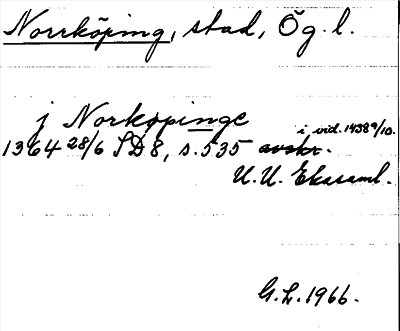 Norrköping, stad, Ög. l.
j Norkøpinge
i vid. 1438 9/10.
1364 28/6 SD 8, s. 535 avskr.
U. U. Eksaml.
G. L. 1966.